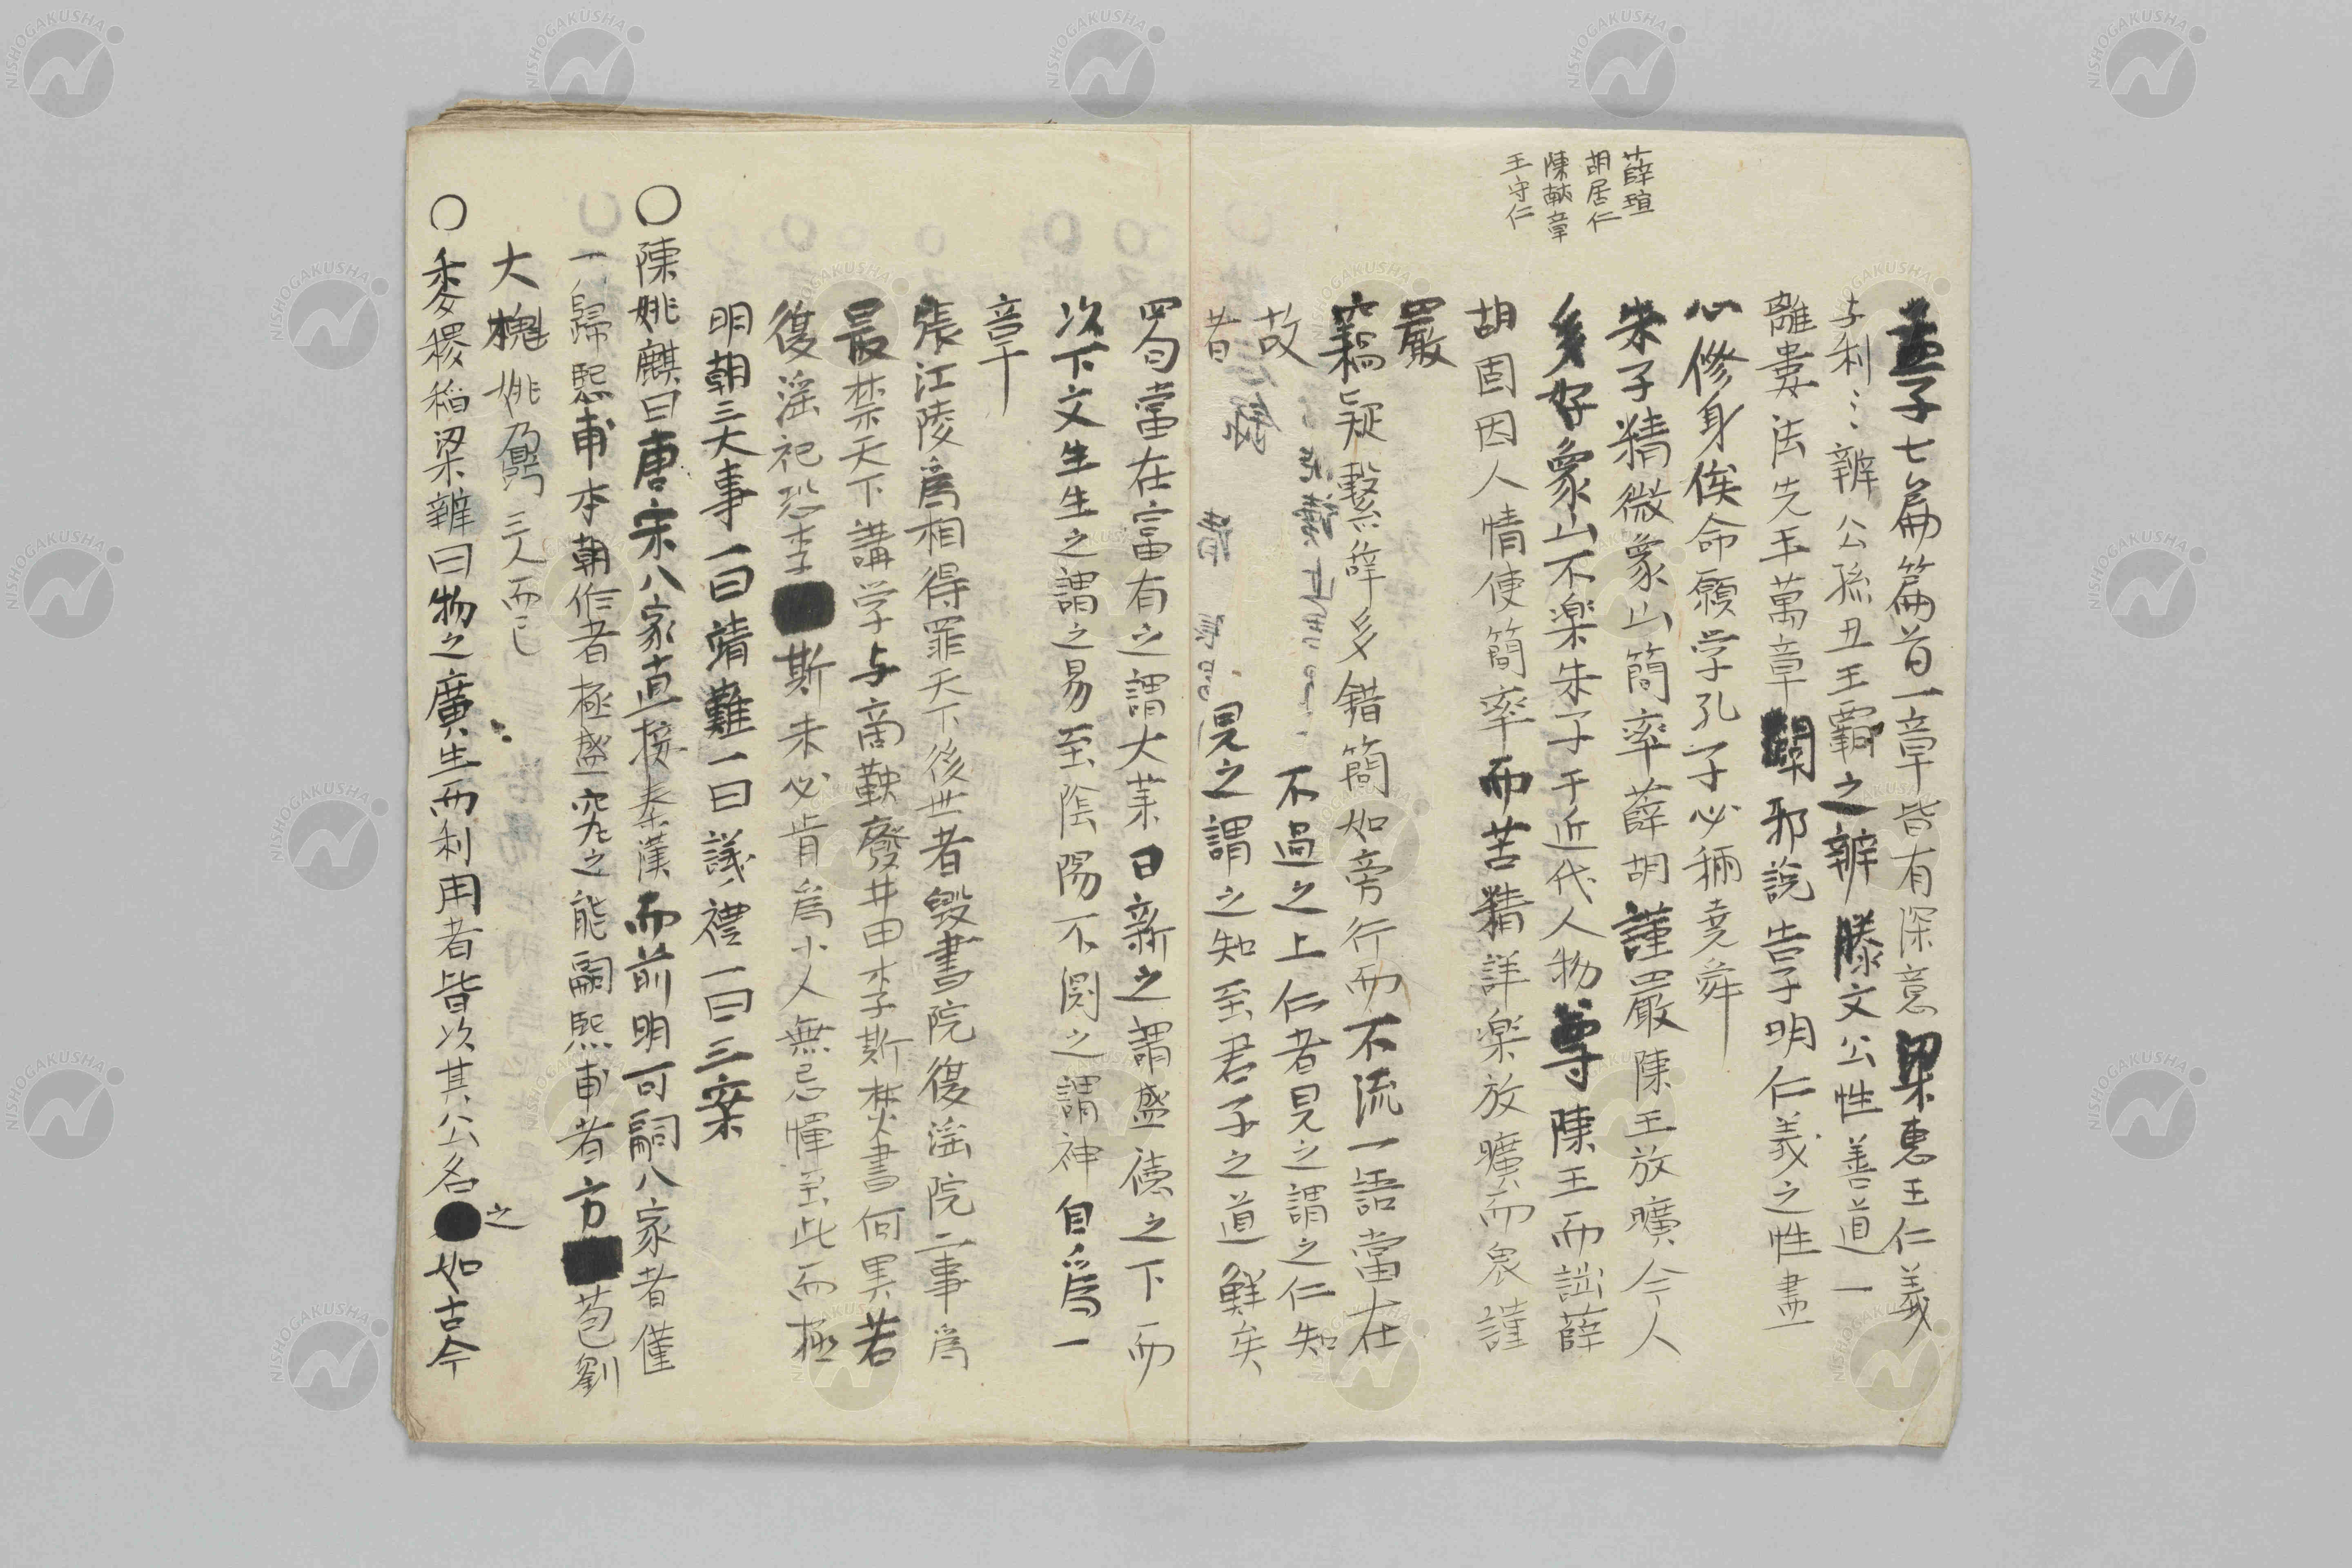 薛瑄
胡居仁
陳献章
王守仁
孟子七篇篇首一章皆有深意梁恵王仁義
与利〻辨公孫丑王覇之辨滕文公性善道一
離婁法先王萬章闢邪説告子明仁義之性盡
心修身俟命願学孔子必稱尭舜
朱子精微象山簡率薛胡謹嚴陳王放曠今人
多好象山不楽朱子于近代人物尊陳王而詘薛
胡固因人情使簡率而苦精詳楽放曠而畏謹
嚴
竊疑繫辞多錯簡如旁行而不流一語當在
故 不過之上仁者見之謂之仁知
者 見之謂之知至君子之道鮮矣
四句當在富有之謂大業日新之謂盛徳之下而
次下文生生之謂之易至陰陽不測之謂神自爲一
章
張江陵爲相得罪天下後世者毀書院復淫院二事爲
最禁天下講学与商鞅廢井田李斯焚書何異若
復淫祀恐李斯未必肯爲小人無忌憚至此而極
明朝三大事一曰靖難一曰議禮一曰三案
〇陳姚麒曰唐宋八家直接秦漢而前明可嗣八家者僅
一歸熙甫本朝作者極盛究之能嗣熙甫者方苞劉
大櫆姚鼐三人而已
〇黍稷稲梁辨曰物之廣生而利用者皆次其公名之如古今
NISHOGAKUSHA